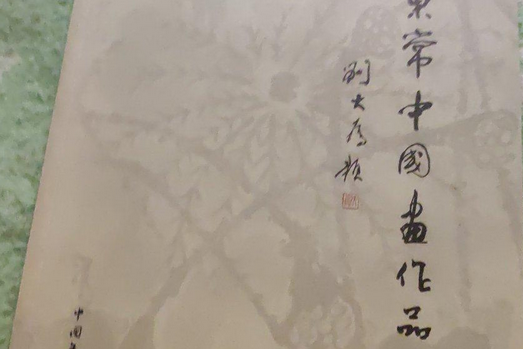 常中國畫作品
劉大為題
中国